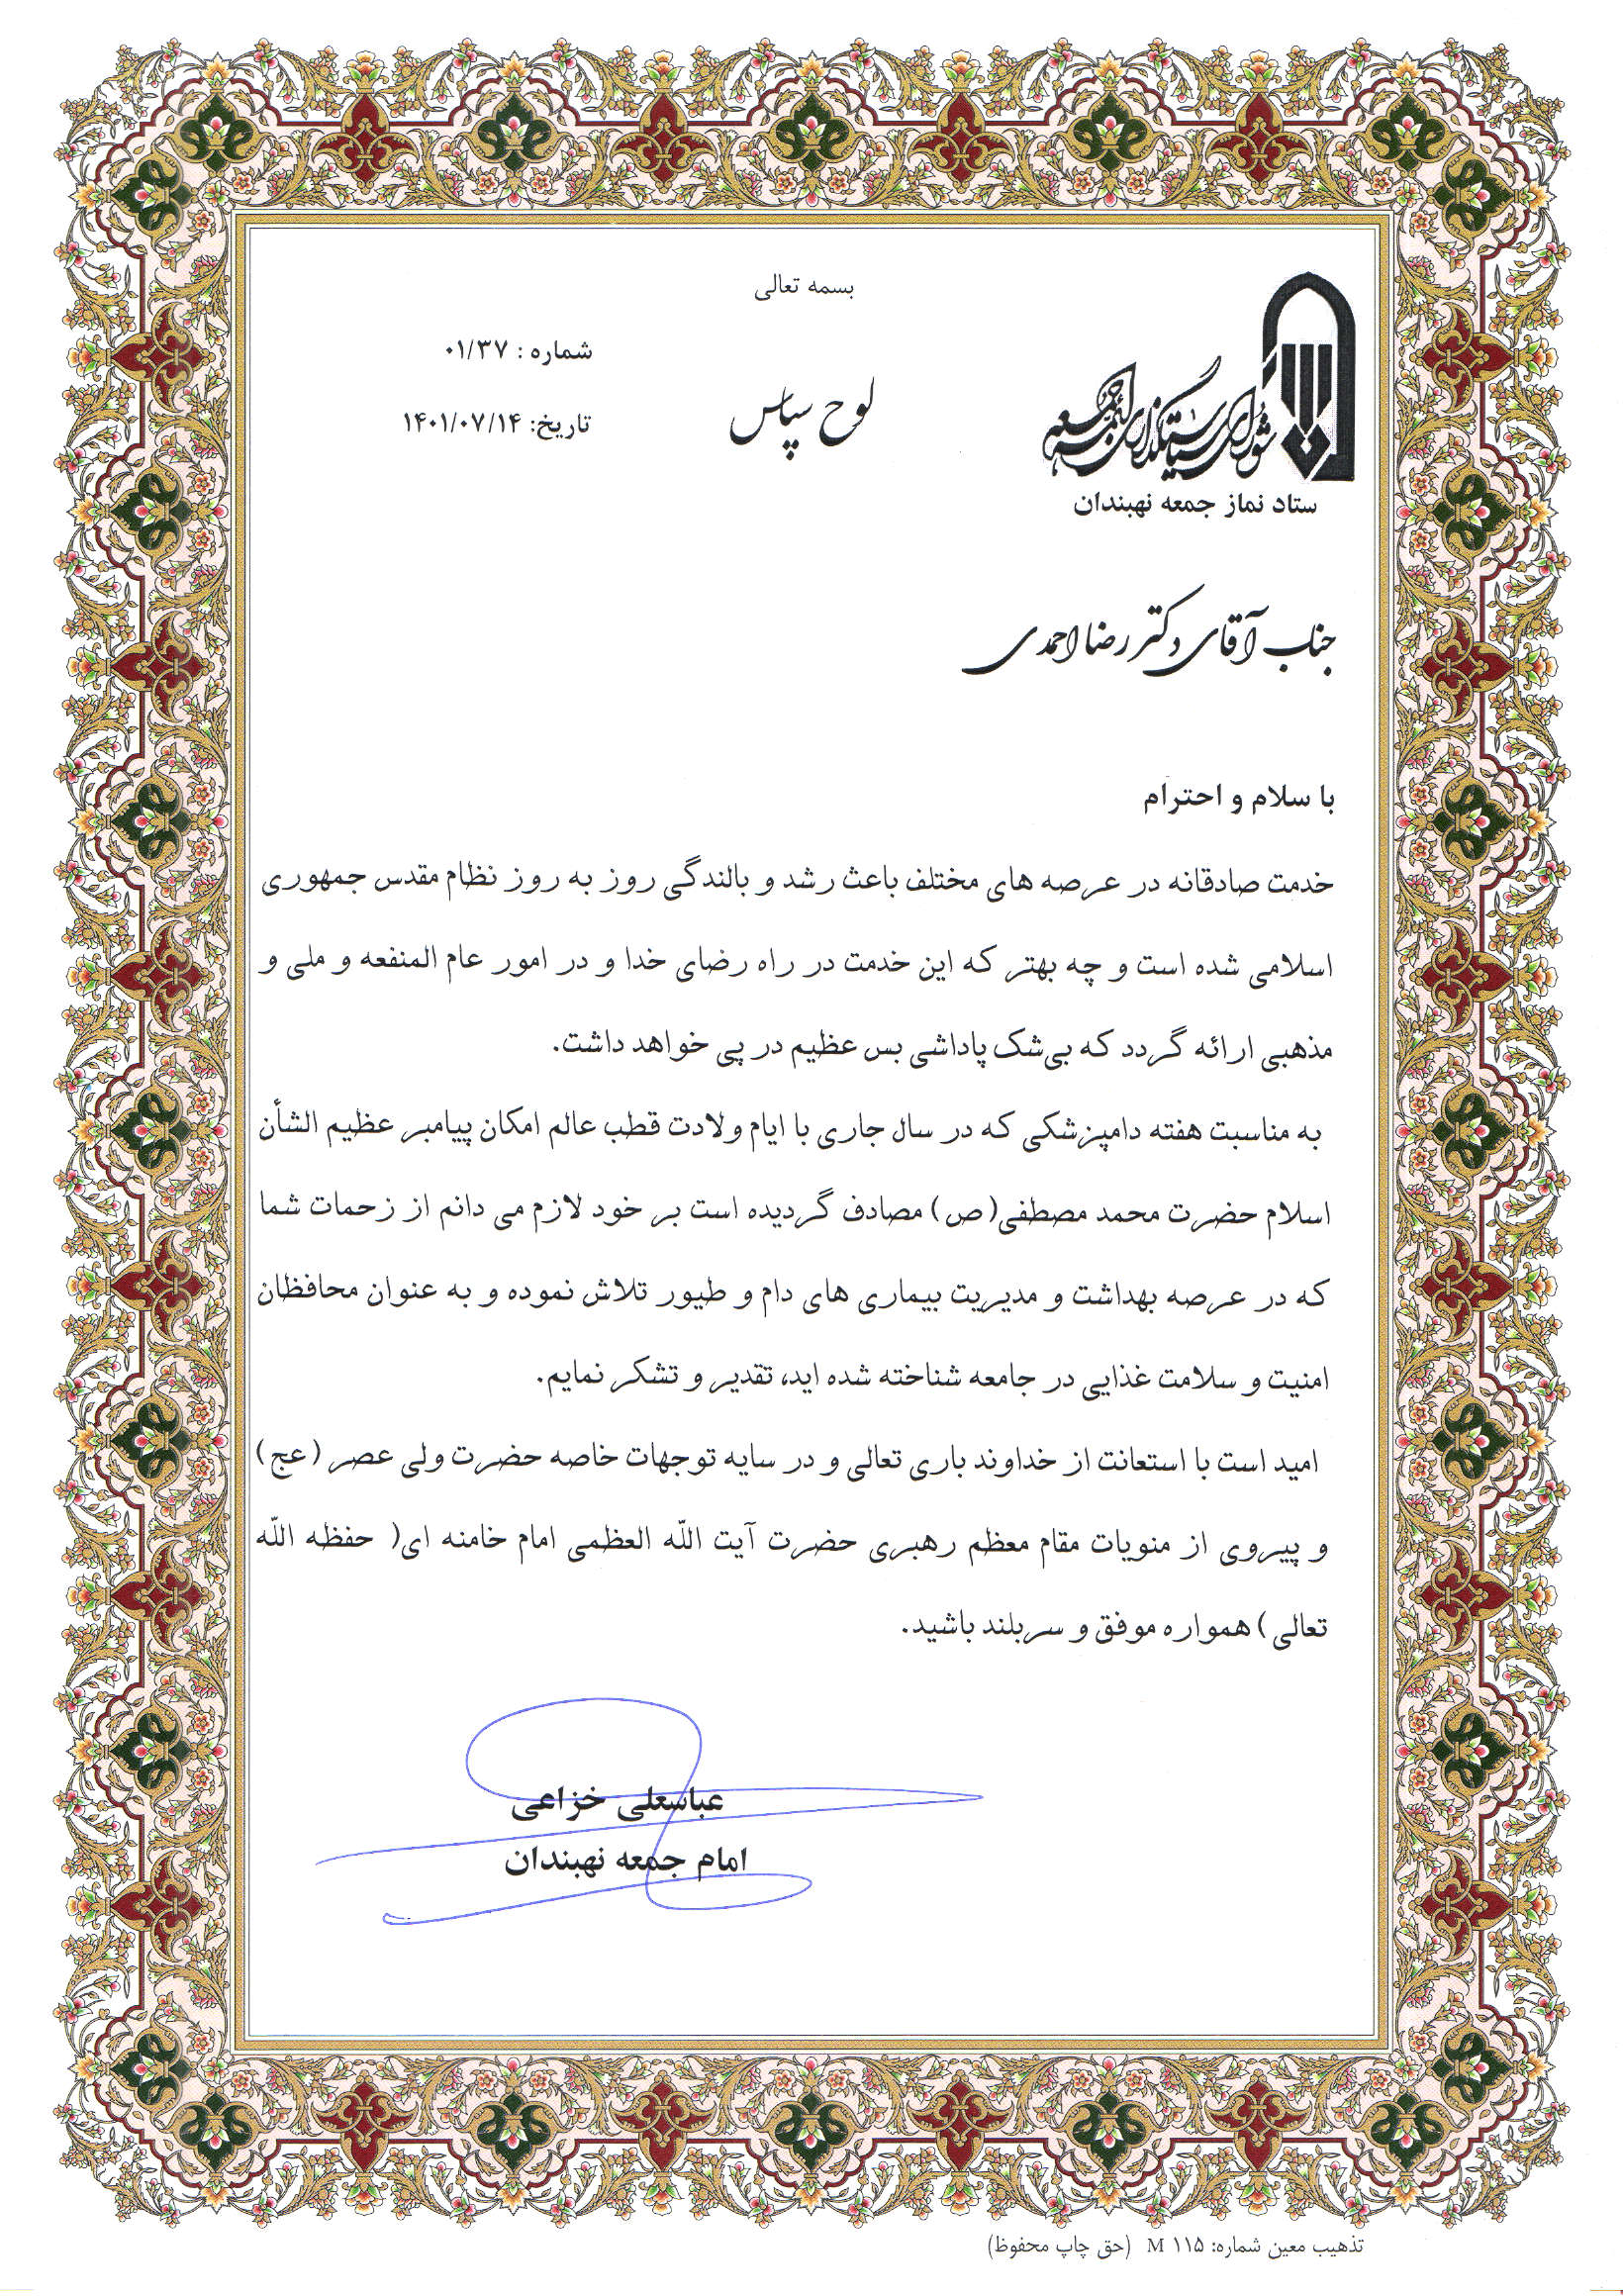 بسمه تعالی
شورای سیاستگذاری ائمه جمعه
ستاد نماز جمعه نهبندان
لوح سپاس
شماره : ۰۱/۳۷
تاریخ: ۱۴۰۱/۰۷/۱۴
جناب آقای دکتر رضا احمدی
با سلام و احترام
خدمت صادقانه در عرصه های مختلف باعث رشد و بالندگی روز به روز نظام مقدس جمهوری
اسلامی شده است و چه بهتر که این خدمت در راه رضای خدا و در امور عام المنفعه و ملی و
مذهبی ارائه گردد که بی‌شک پاداشی بس عظیم در پی خواهد داشت.
به مناسبت هفته دامپزشکی که در سال جاری با ایام ولادت قطب عالم امکان پیامبر عظیم الشأن
اسلام حضرت محمد مصطفی(ص) مصادف گردیده است بر خود لازم می دانم از زحمات شما
که در عرصه بهداشت و مدیریت بیماری های دام و طیور تلاش نموده و به عنوان محافظان
امنیت و سلامت غذایی در جامعه شناخته شده اید، تقدیر و تشکر نمایم.
امید است با استعانت از خداوند باری تعالی و در سایه توجهات خاصه حضرت ولی عصر (عج)
و پیروی از منویات مقام معظم رهبری حضرت آیت اللّه العظمی امام خامنه ای( حفظه اللّه
تعالی) همواره موفق و سربلند باشید.
عباسعلی خزاعی
امام جمعه نهبندان
تذهیب معین شماره: M ۱۱۵ (حق چاپ محفوظ)